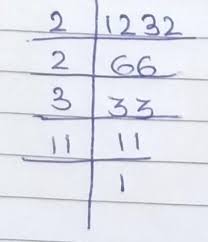 2 | 1232
2 | 66
3 | 33
11 | 11
1